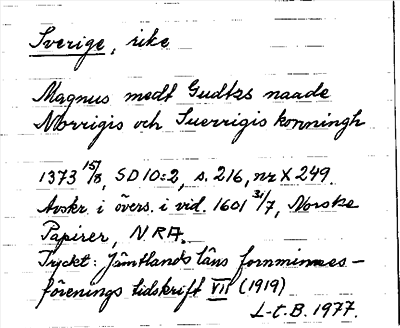 Sverige, rike
Magnus medt Gudtzs naade
Norrigis och Suerrigis konningh
1373 15/8, SD 10:2, s. 216, nr X 249.
Avskr. i övers. i vid. 1601 31/7, Norske
Papirer, NRA.
Tryckt: Jämtlands läns fornminnes-
förenings tidskrift VII (1919)
L-t.B. 1977.